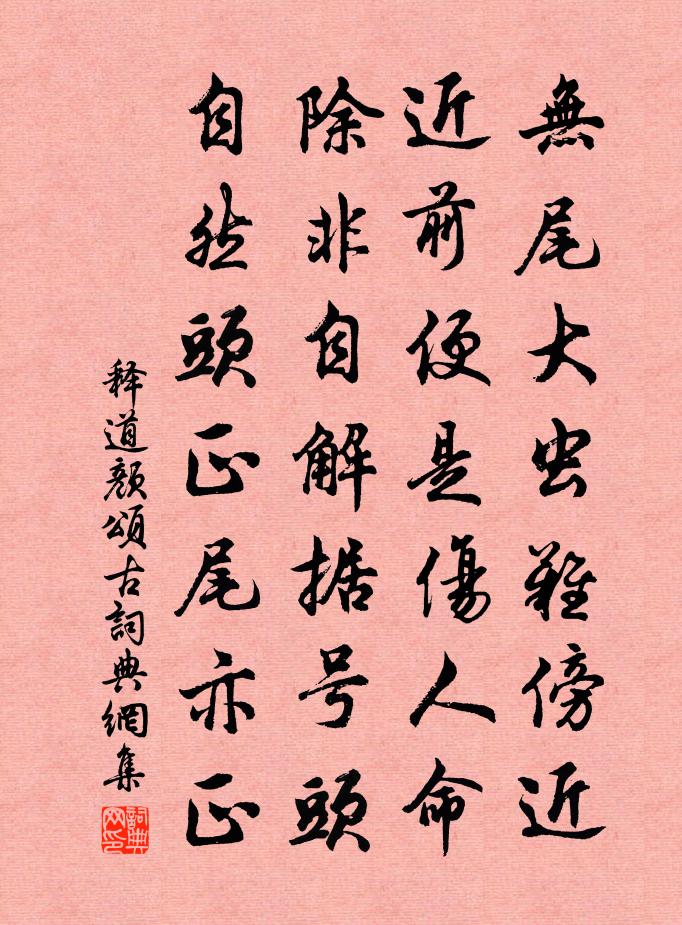 無尾大虫難傍近
近前便是傷人命
除非自解据号頭
自然頭正尾亦正
释道颜頌古詞典網集
詞典网印